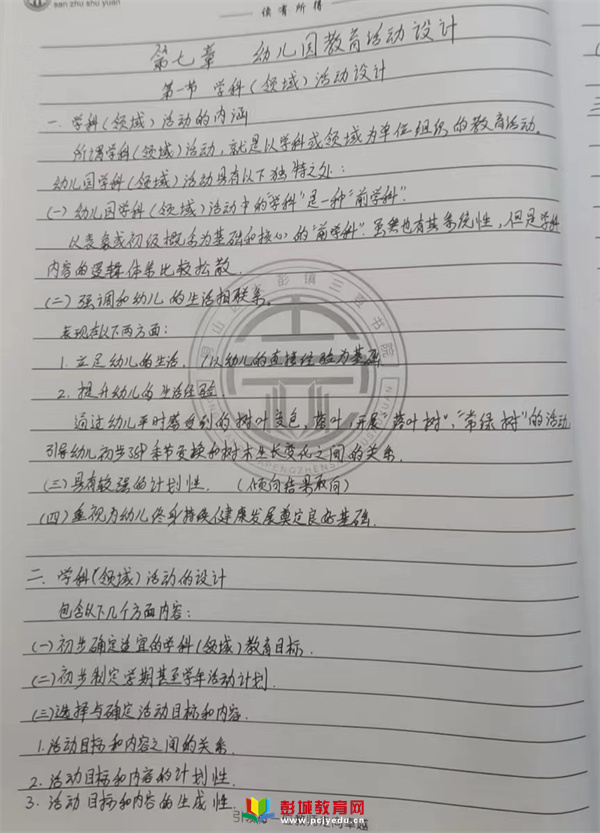 san zhu shu yuan
读有所得
第七章 幼儿园教育活动设计
第一节 学科(领域)活动设计
一. 学科(领域)活动的内涵
所谓学科(领域)活动, 就是以学科或领域为单位组织的教育活动。
幼儿园学科(领域)活动具有以下独特之处:
(一) 幼儿园学科(领域)活动中的"学科"是一种"前学科".
以表象或初级概念为基础和核心的"前学科". 虽然也有其系统性, 但是学科
内容的逻辑体系比较松散.
(二) 强调和幼儿的生活相联系。
表现在以下两方面:
1. 立足幼儿的生活. (以幼儿的直接经验为基础
2. 提升幼儿的生活经验.
通过幼儿平时感知到的树叶变色, 落叶, 开展"落叶树", "常绿树"的活动
引导幼儿初步理解季节变换和树木生长变化之间的关系.
(三) 具有较强的计划性. (倾向结果取向)
(四) 重视为幼儿终身持续健康发展奠定良好基础.
二. 学科(领域)活动的设计
包含以下几个方面内容:
(一) 初步确定适宜的学科(领域)教育目标.
(二) 初步制定学期甚至学年活动计划.
(三) 选择与确定活动目标和内容.
1. 活动目标和内容之间的关系.
2. 活动目标和内容的计划性.
3. 活动目标和内容的生成性.
彭城教育网
www.pcjyedu.cn